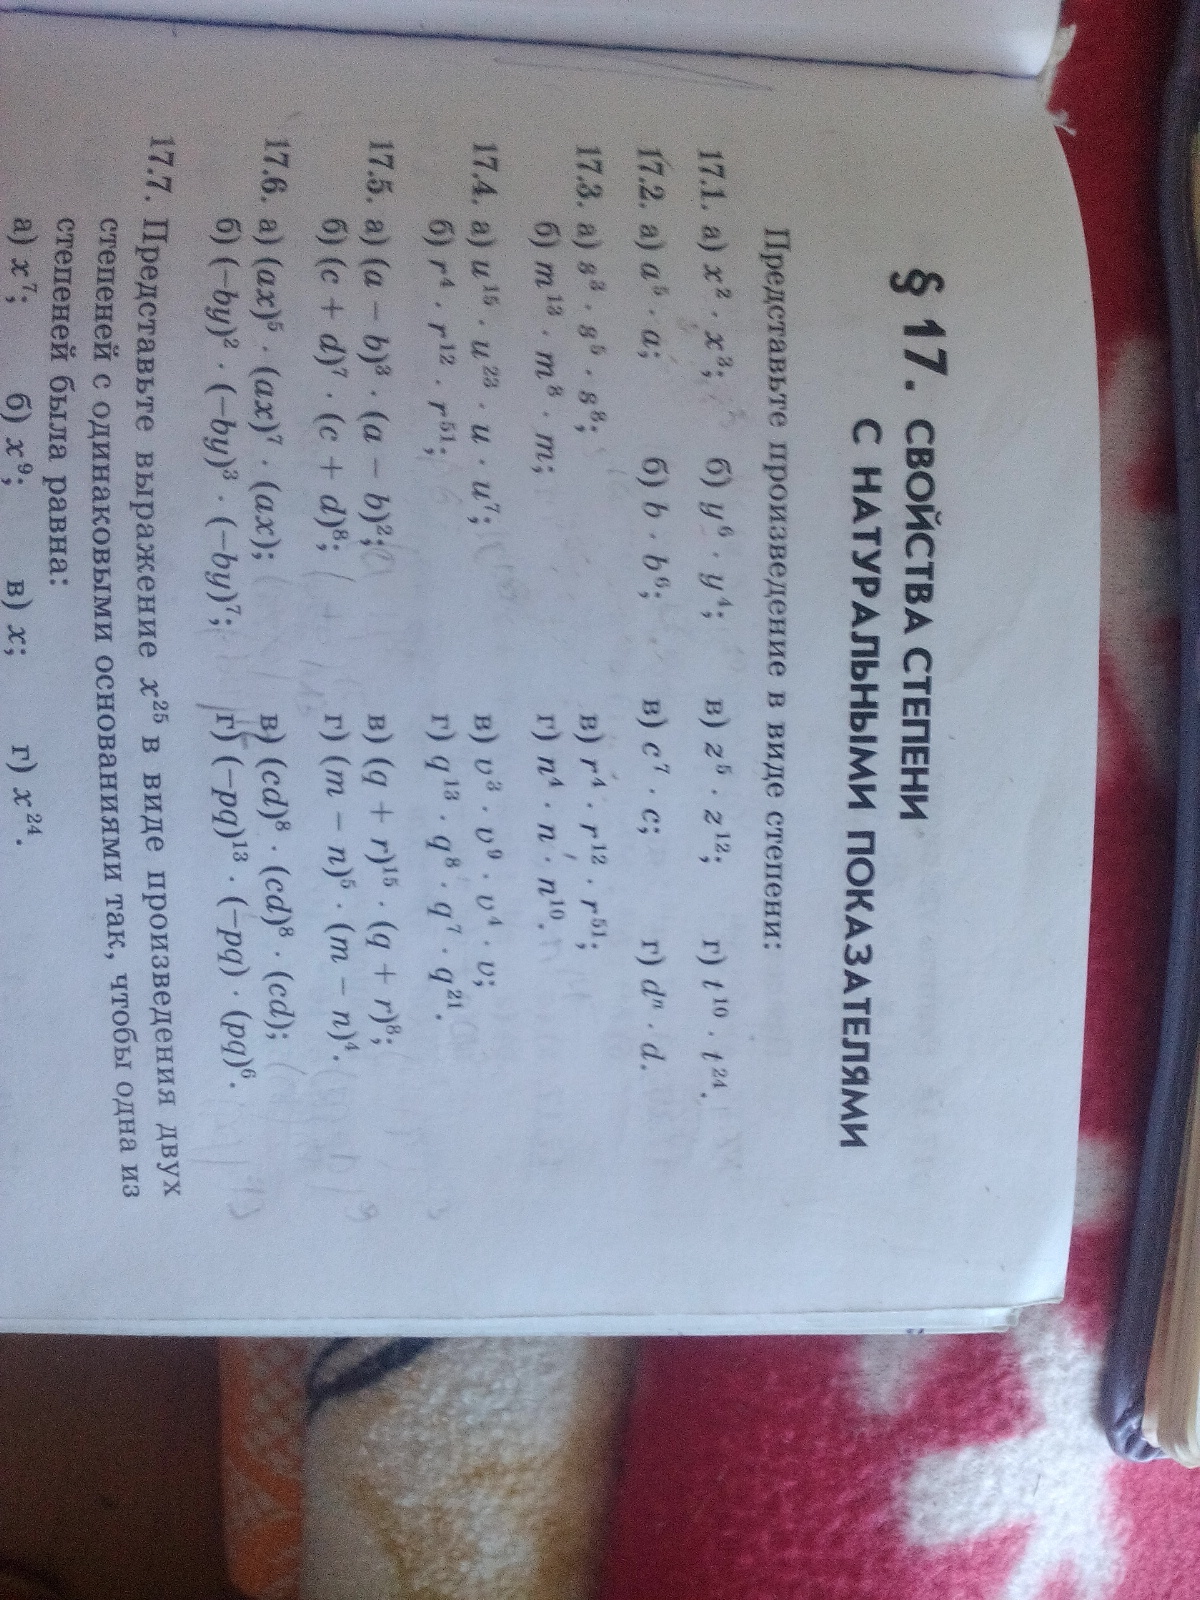 § 17. СВОЙСТВА СТЕПЕНИ
С НАТУРАЛЬНЫМИ ПОКАЗАТЕЛЯМИ
Представьте произведение в виде степени:
17.1. а) x² · x³; б) y⁶ · y⁴; в) z⁵ · z¹²; г) t¹⁰ · t²⁴.
17.2. а) a⁵ · a; б) b · b⁶; в) c⁷ · c; г) dⁿ · d.
17.3. а) s³ · s⁵ · s⁸; в) r⁴ · r¹² · r⁵¹;
б) m¹³ · m⁸ · m; г) n⁴ · n · n¹⁰.
17.4. а) u¹⁵ · u²³ · u · u⁷; в) v³ · v⁹ · v⁴ · v;
б) r⁴ · r¹² · r⁵¹; г) q¹³ · q⁸ · q⁷ · q²¹.
17.5. а) (a − b)³ · (a − b)²; в) (q + r)¹⁵ · (q + r)⁸;
б) (c + d)⁷ · (c + d)⁸; г) (m − n)⁵ · (m − n)⁴.
17.6. а) (ax)⁵ · (ax)⁷ · (ax); в) (cd)⁸ · (cd)⁸ · (cd);
б) (−by)² · (−by)³ · (−by)⁷; г) (−pq)¹³ · (−pq) · (pq)⁶.
17.7. Представьте выражение x²⁵ в виде произведения двух
степеней с одинаковыми основаниями так, чтобы одна из
степеней была равна:
а) x⁷; б) x⁹; в) x; г) x²⁴.